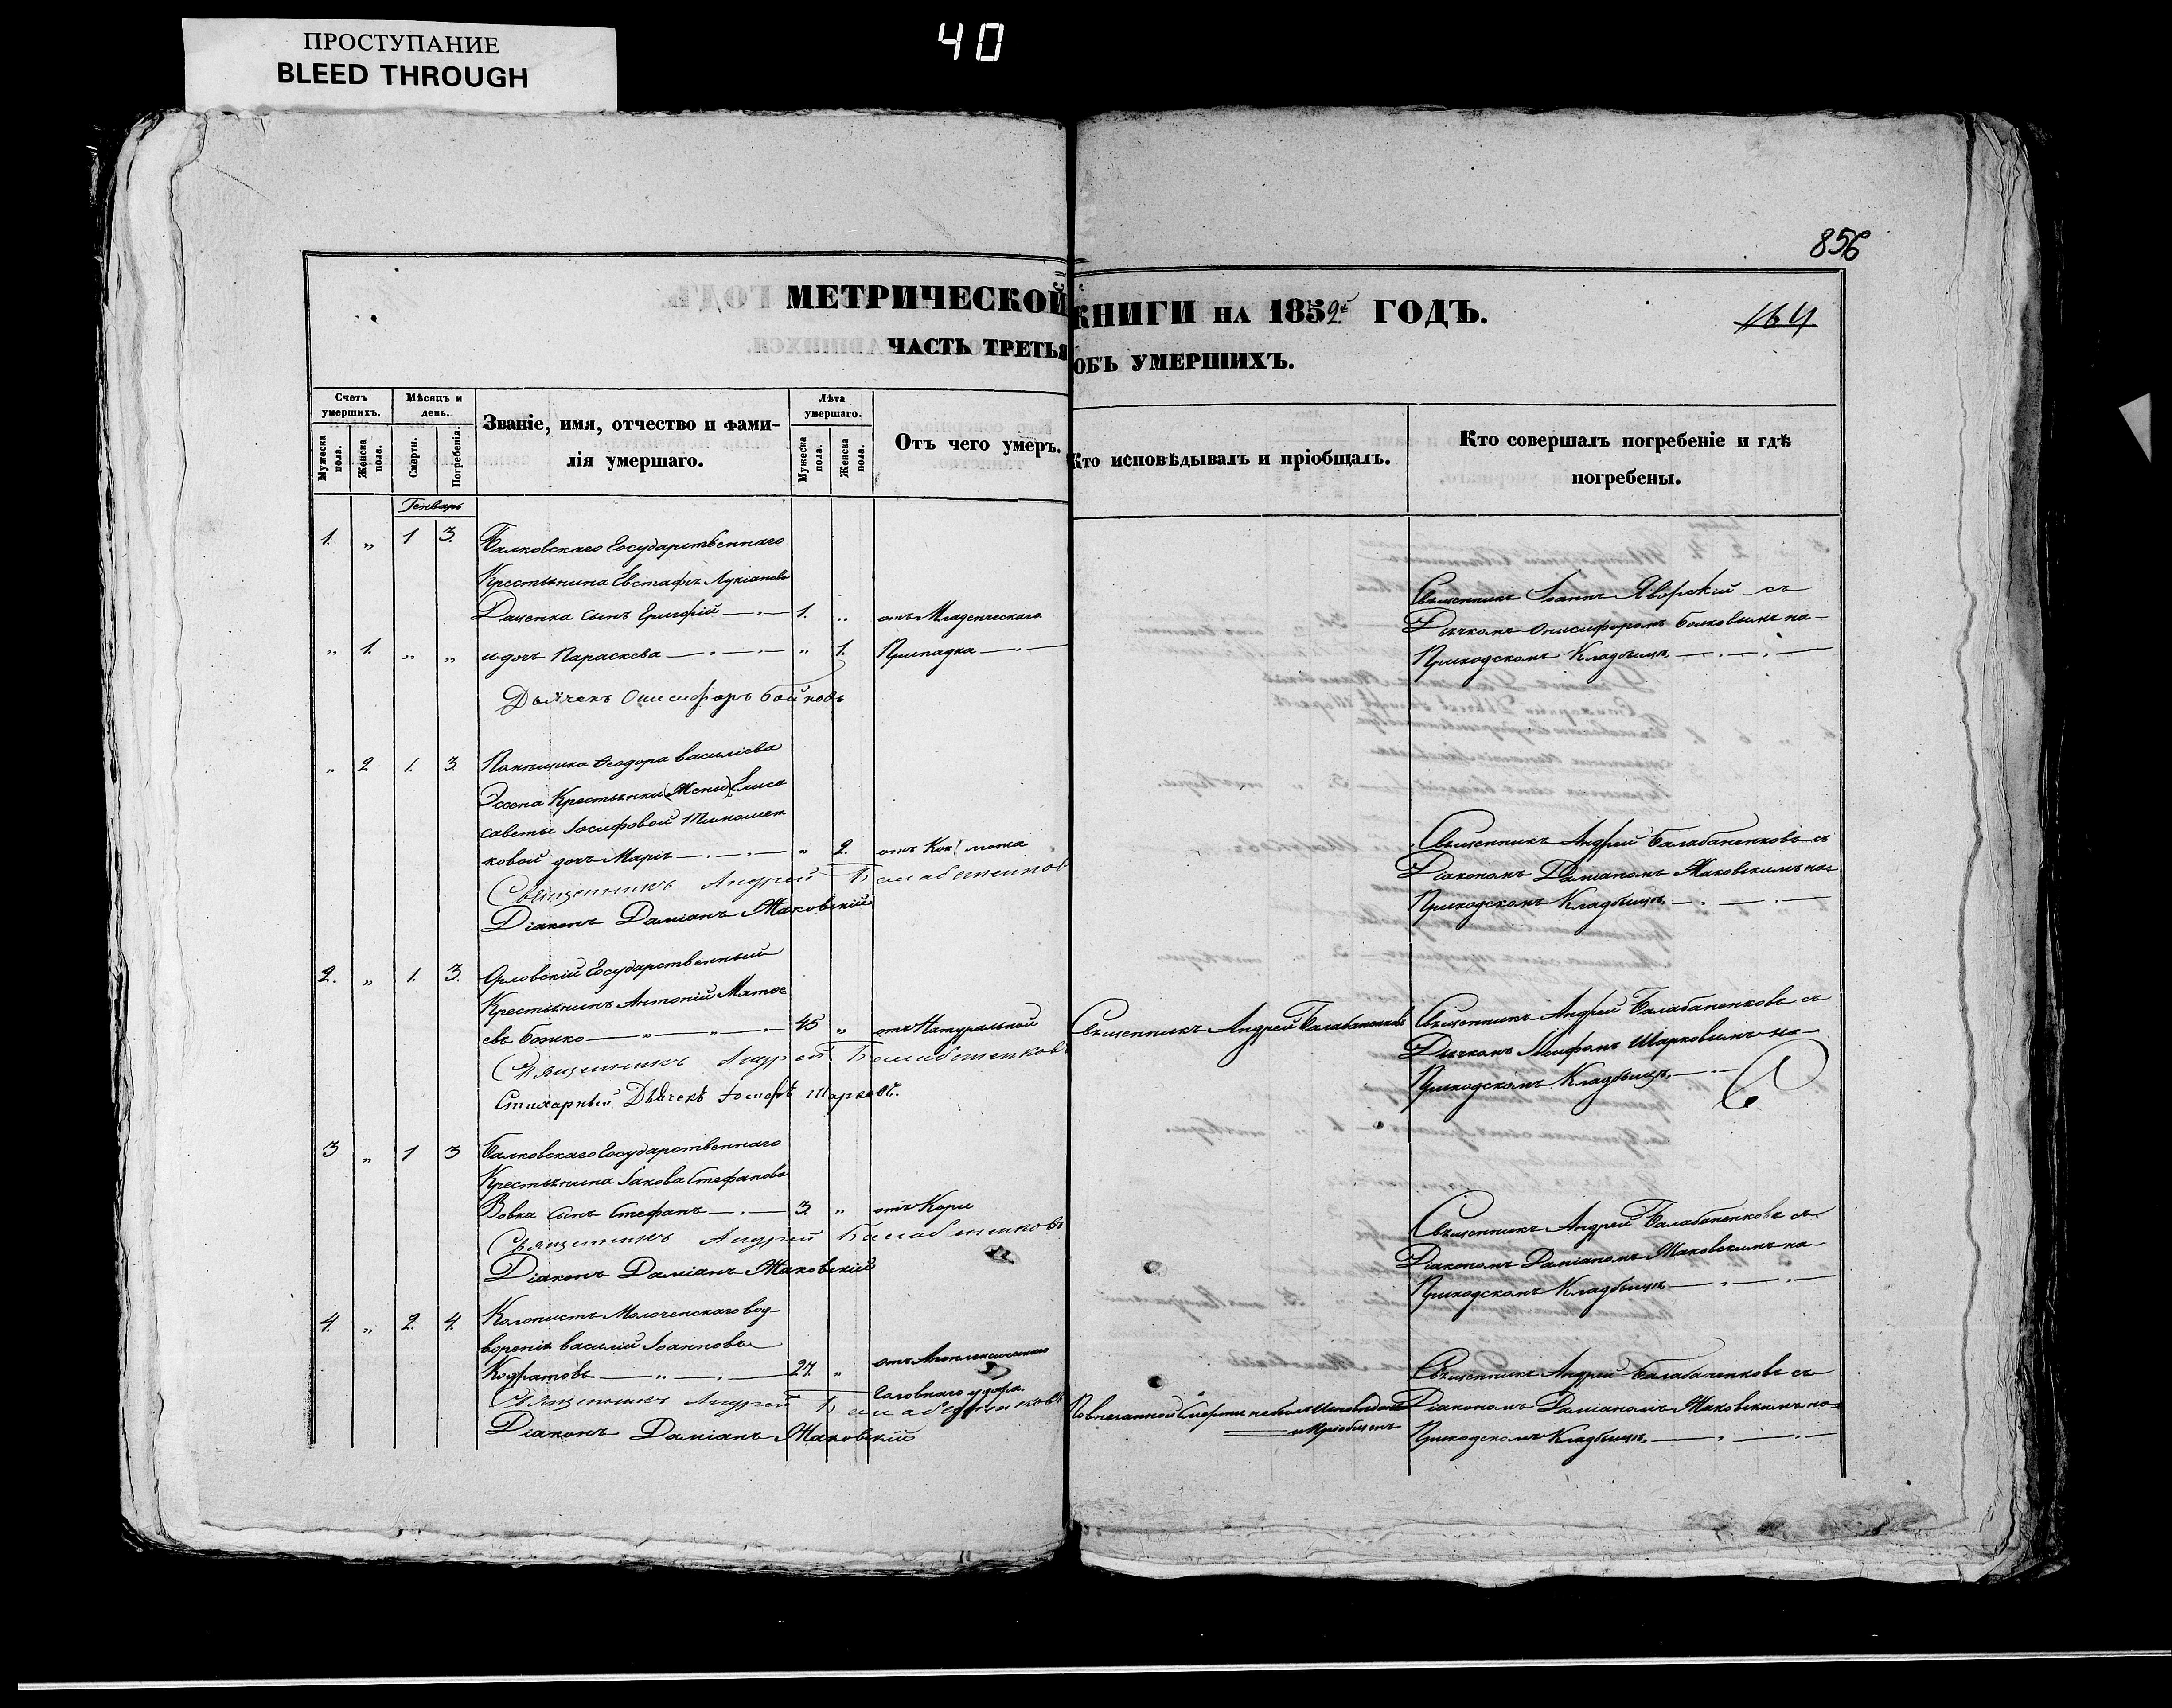 ПРОСТУПАНИЕ
BLEED THROUGH
40
856
МЕТРИЧЕСКОЙ КНИГИ НА 1852й ГОДЪ.
164
ЧАСТЬ ТРЕТЬЯ ОБЪ УМЕРШИХЪ.
Счетъ умершихъ.
Мужеска пола.
Женска пола.
Мѣсяцъ и день.
Смерти.
Погребенія.
Званіе, имя, отчество и фами-
лія умершаго.
Лѣта умершаго.
Мужеска пола.
Женска пола.
Отъ чего умеръ.
Кто исповѣдывалъ и пріобщалъ.
Кто совершалъ погребеніе и гдѣ
погребены.
Генварь
1. „ 1 3. Балковскаго Государственнаго
Крестьянина Евстафія Лукіанова
Даценка сынъ Григорій 1. „ отъ Младенческаго
„ 1. „ „ и дочь Параскева „ 1. Припадка
Священникъ Іоаннъ Яворскій съ
Дьячкомъ Онисифоромъ Бойковымъ на
Приходскомъ Кладбищѣ
Дьячекъ Онисифоръ Бойковъ
„ 2 1. 3. Помѣщика Ѳеодора Василіева
Эссена Крестьянки (Жены) Елиса
саветы Іосифовой
ковой дочь Марія „ 2. отъ
Священникъ Андрей Балабаненковъ съ
Діакономъ Даміаномъ Маковскимъ на
Приходскомъ Кладбищѣ
Священникъ Андрей Балабаненковъ
Діаконъ Даміанъ Маковскій
2. „ 1. 3. Орловскій Государственный
Крестьянинъ Антоній Матѳе
евъ Божко 45 „ отъ Натуральной
Священникъ Андрей Балабаненковъ
Священникъ Андрей Балабаненковъ съ
Дьячкомъ Іосифомъ Шарковымъ на
Приходскомъ Кладбищѣ
Священникъ Андрей Балабаненковъ
Стихарный Дьячекъ Іосифъ Шарковъ.
3 „ 1 3 Балковскаго Государственнаго
Крестьянина Іакова Стефанова
Вовка сынъ Стефанъ 3. „ отъ Кори
Священникъ Андрей Балабаненковъ съ
Діакономъ Даміаномъ Маковскимъ на
Приходскомъ Кладбищѣ
Священникъ Андрей Балабаненковъ
Діаконъ Даміанъ Маковскій
4. „ 2. 4. Колонистъ Молоченскаго вод-
воренія Василій Іоанновъ
27. „ отъ Апоплексическаго
Головнаго удара.
По внезапной Смерти не былъ Исповѣданъ
и Пріобщенъ
Священникъ Андрей Балабаненковъ съ
Діакономъ Даміаномъ Маковскимъ на
Приходскомъ Кладбищѣ
Священникъ Андрей Балабаненковъ
Діаконъ Даміанъ Маковскій